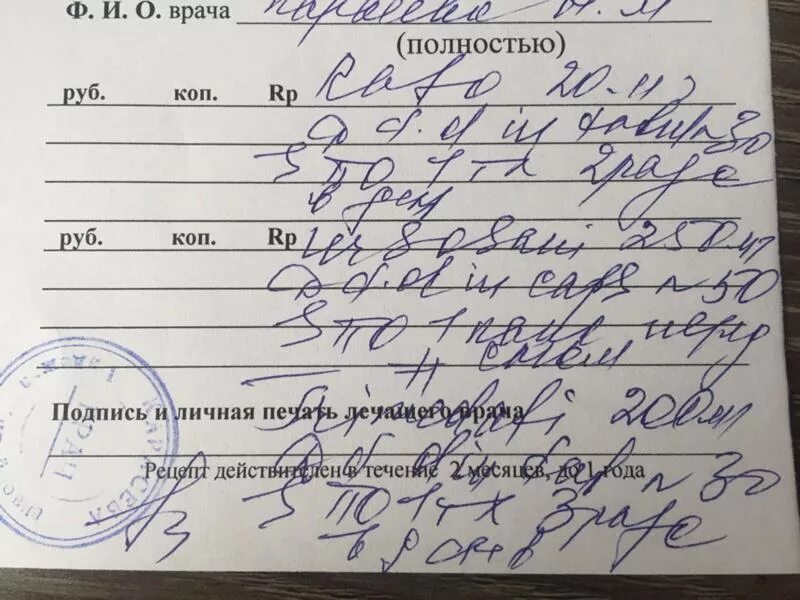 Ф. И. О. врача
(полностью)
руб. коп. Rp Rabo 20 мг
D.t.d in tabul n 30
S по 1 тх 2 раза
в день
руб. коп. Rp Ursosani 250 мг
D.t.d in caps n 50
S по 1 капс перед
сном
Подпись и личная печать лечащего врача
Trimedati 200 мг
D.t.d in tab n 30
Рецепт действителен в течение 2 месяцев, до 1 года
S по 1 тх 3 раза
в день
ВРАЧ